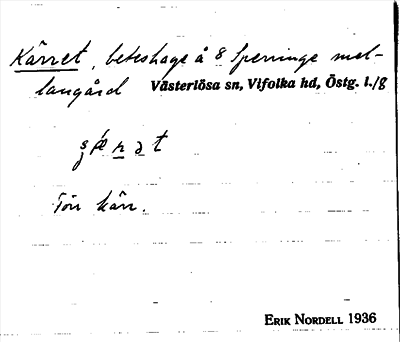 Kärret, beteshage å 8 Sperringe mel-
langård Västerlösa sn, Vifolka hd, Östg. l./g
Törr kärr.
ERIK NORDELL 1936